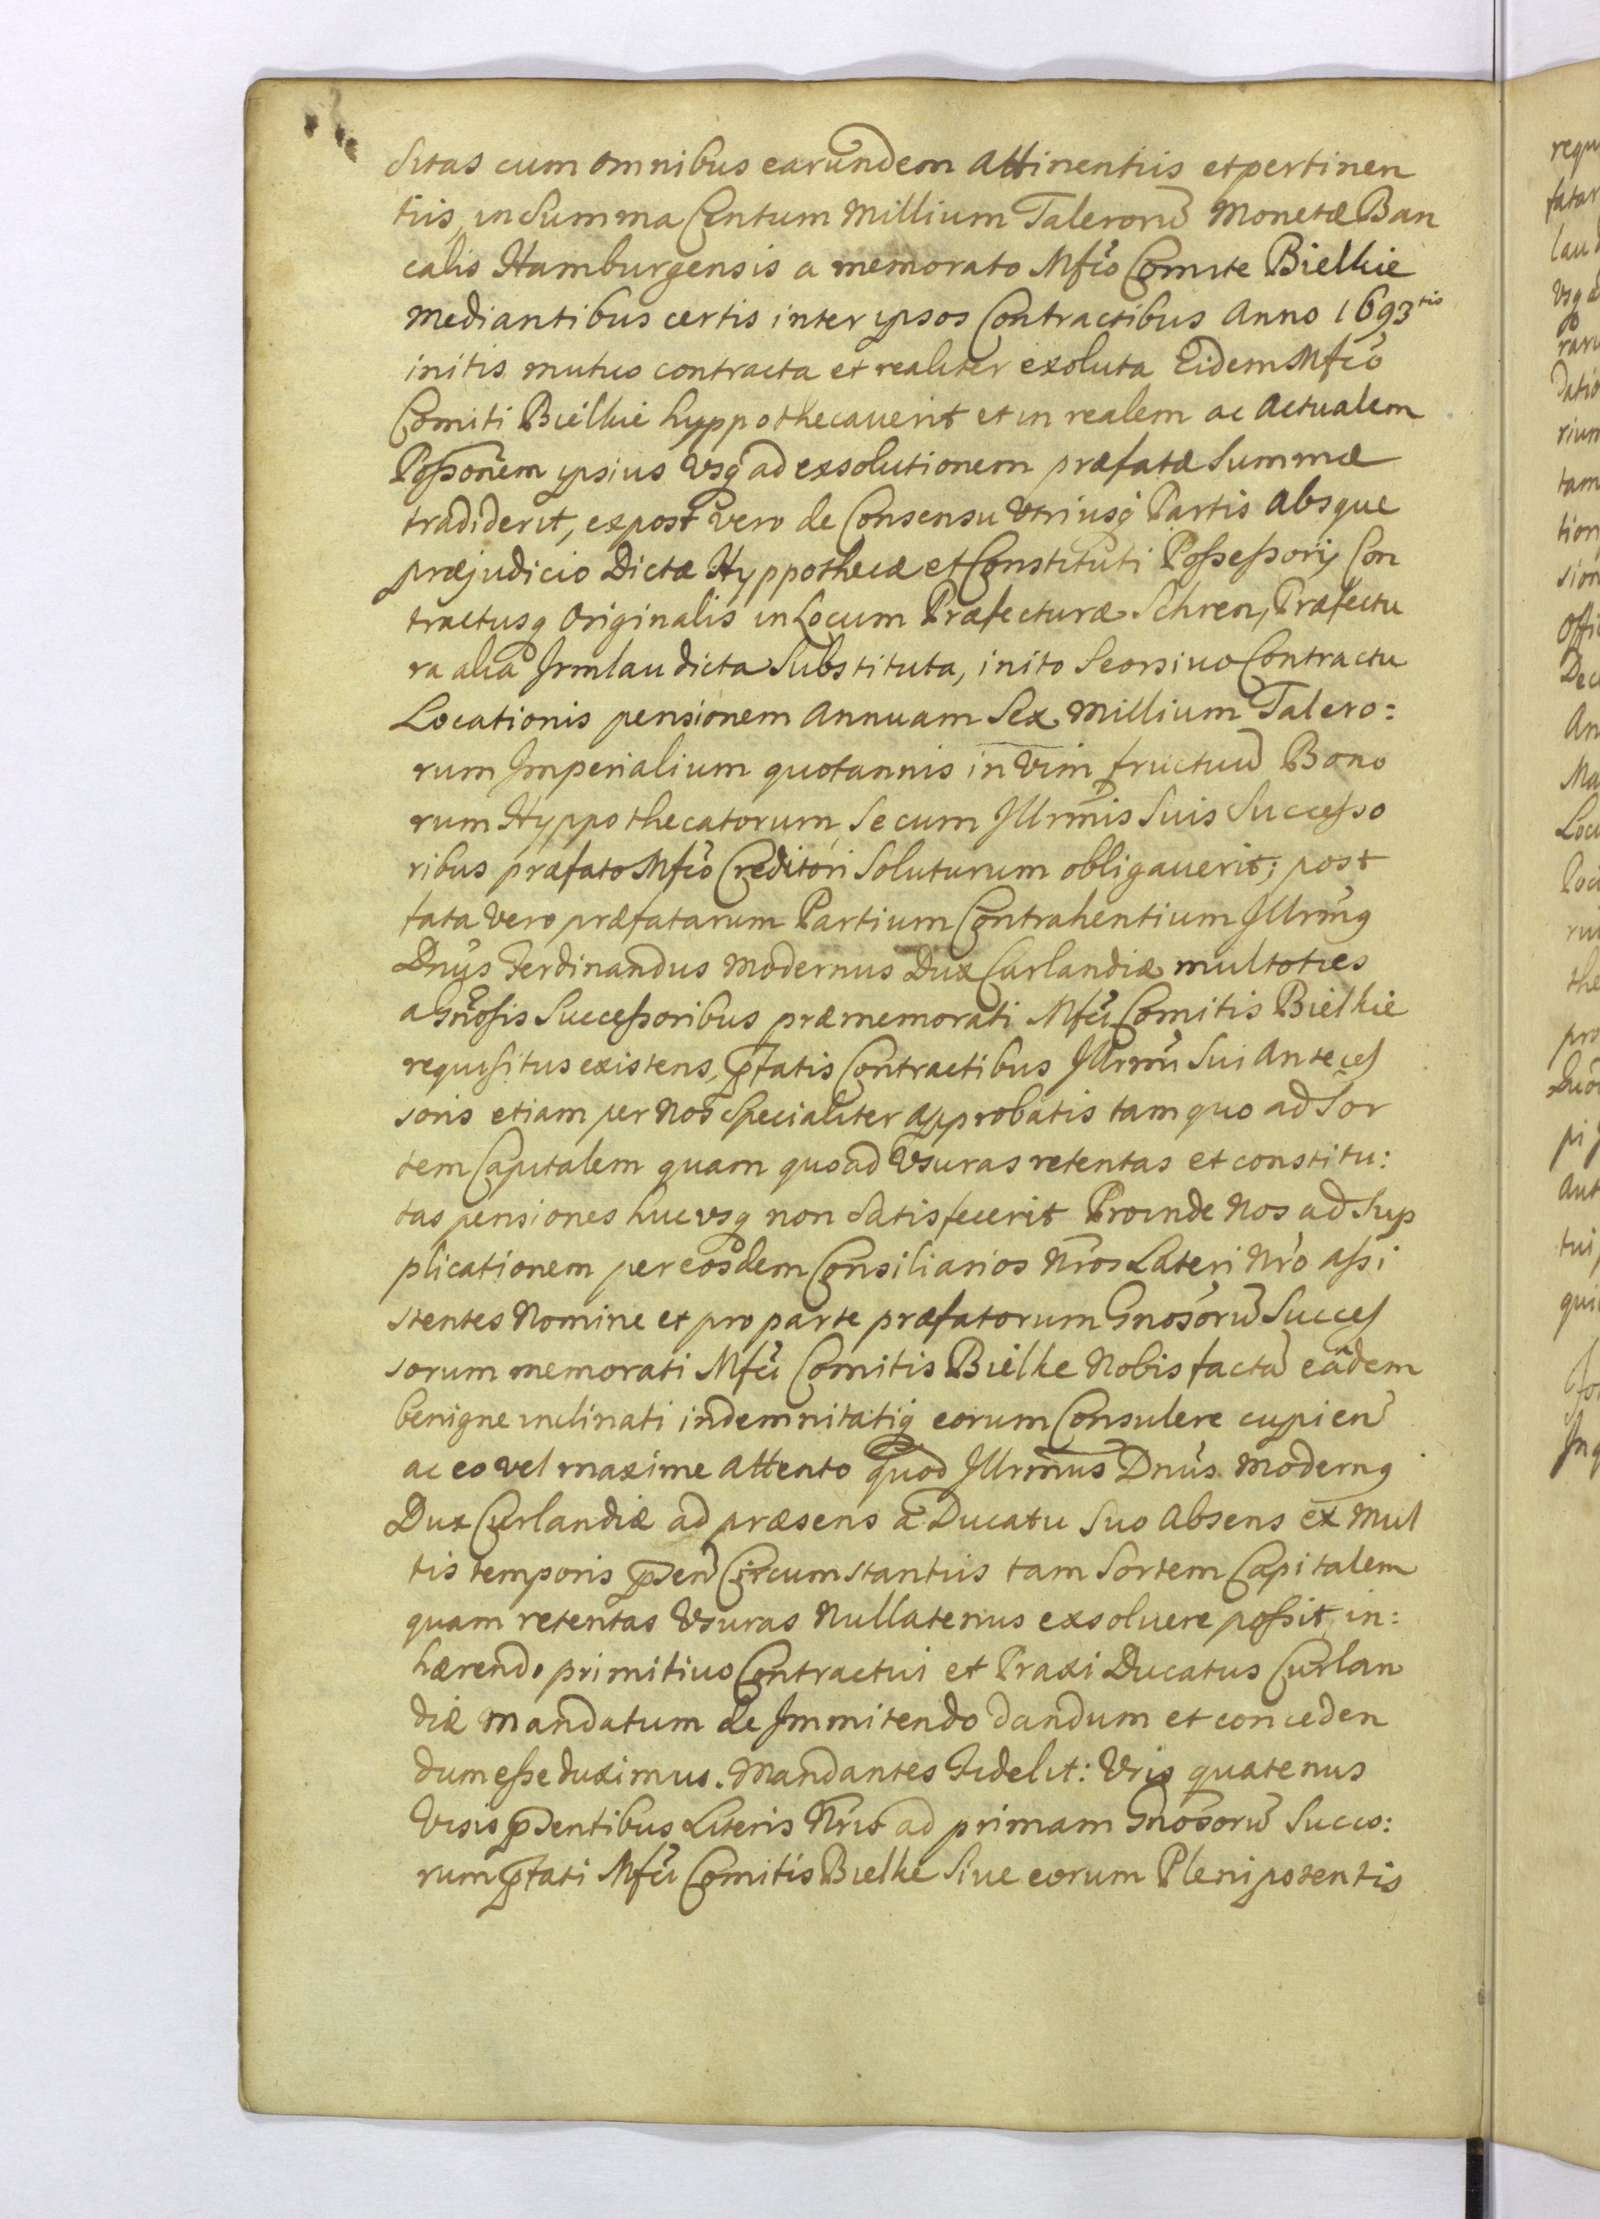 sitas cum omnibus earundem attinentiis et pertinen
tiis, in Summa Centum Millium Talerorū Monetæ Ban
calis Hamburgensis a memorato Mfcō Comite Bielkie
mediantibus certis inter ipsos Contractibus Anno 1693tio
initis mutuo contracta et realiter exoluta Eidem Mfcō
Comiti Bielkie hyppothecaverit et in realem ac actualem
Possoñem ipsius Vsq̃ ad exsolutionem præfatæ Summæ
tradiderit, expost vero de Consensu Vtriusq̃ Partis absque
præjudicio Dictæ Hyppothecæ et Constituti Possessorij Con
tractusq Originalis in Locum Præfecturæ Schren, Præfectu
ra alia Irmlau dicta Substituta, inito Seorsivo Contractu
Locationis pensionem annuam Sex Millium Talero:
rum Imperialium quotannis in Vim fructuū Bono
rum Hyppothecatorum Secum Illrm̃is Suis Successo
ribus præfato Mfcō Creditori Soluturum obligaverit; post
fata Vero præfatarum Partium Contrahentium Illrmq̃
Dnũs Ferdinandus Modernus Dux Curlandiæ multoties
a Gñosis Successoribus præmemorati Mfcī Comitis Bielkie
requisitus existens, p̃fatis Contractibus Illrmī Sui Anteces
soris etiam per Nos Specialiter approbatis tam quo ad Sor
tem Capitalem quam quoad Vsuras retentas et constitu:
tas pensiones hucvsq non Satisfecerit Proinde Nos ad Sup
plicationem per eosdem Consiliarios Nr̃os Lateri Nr̃o assi
stentes Nomine et pro parte præfatorum Gnosorū Succes
sorum memorati Mfcī Comitis Bielke Nobis factā eâdem
benigne inclinati indemnitatiq̃ eorum Consulere cupien̄
ac eo vel maxime attento quod Illrmus Dnũs Modernq
Dux Curlandiæ ad præsens à Ducatu Suo absens ex mul
tis temporis p̃sen̄ Circumstantiis tam Sortem Capitalem
quam retentas Vsuras Nullatenus exsoluere possit, in:
hærendo primitivo Contractui et Praxi Ducatus Curlan
diæ Mandatum de Immitendo dandum et conceden
dum esse duximus. Mandantes Fidelit: Vris quatenus
Visis p̃sentibus Literis Nr̃is ad primam Gnosorū Succo:
rum p̃fati Mfcī Comitis Bielke Sive eorum Plenipotentis